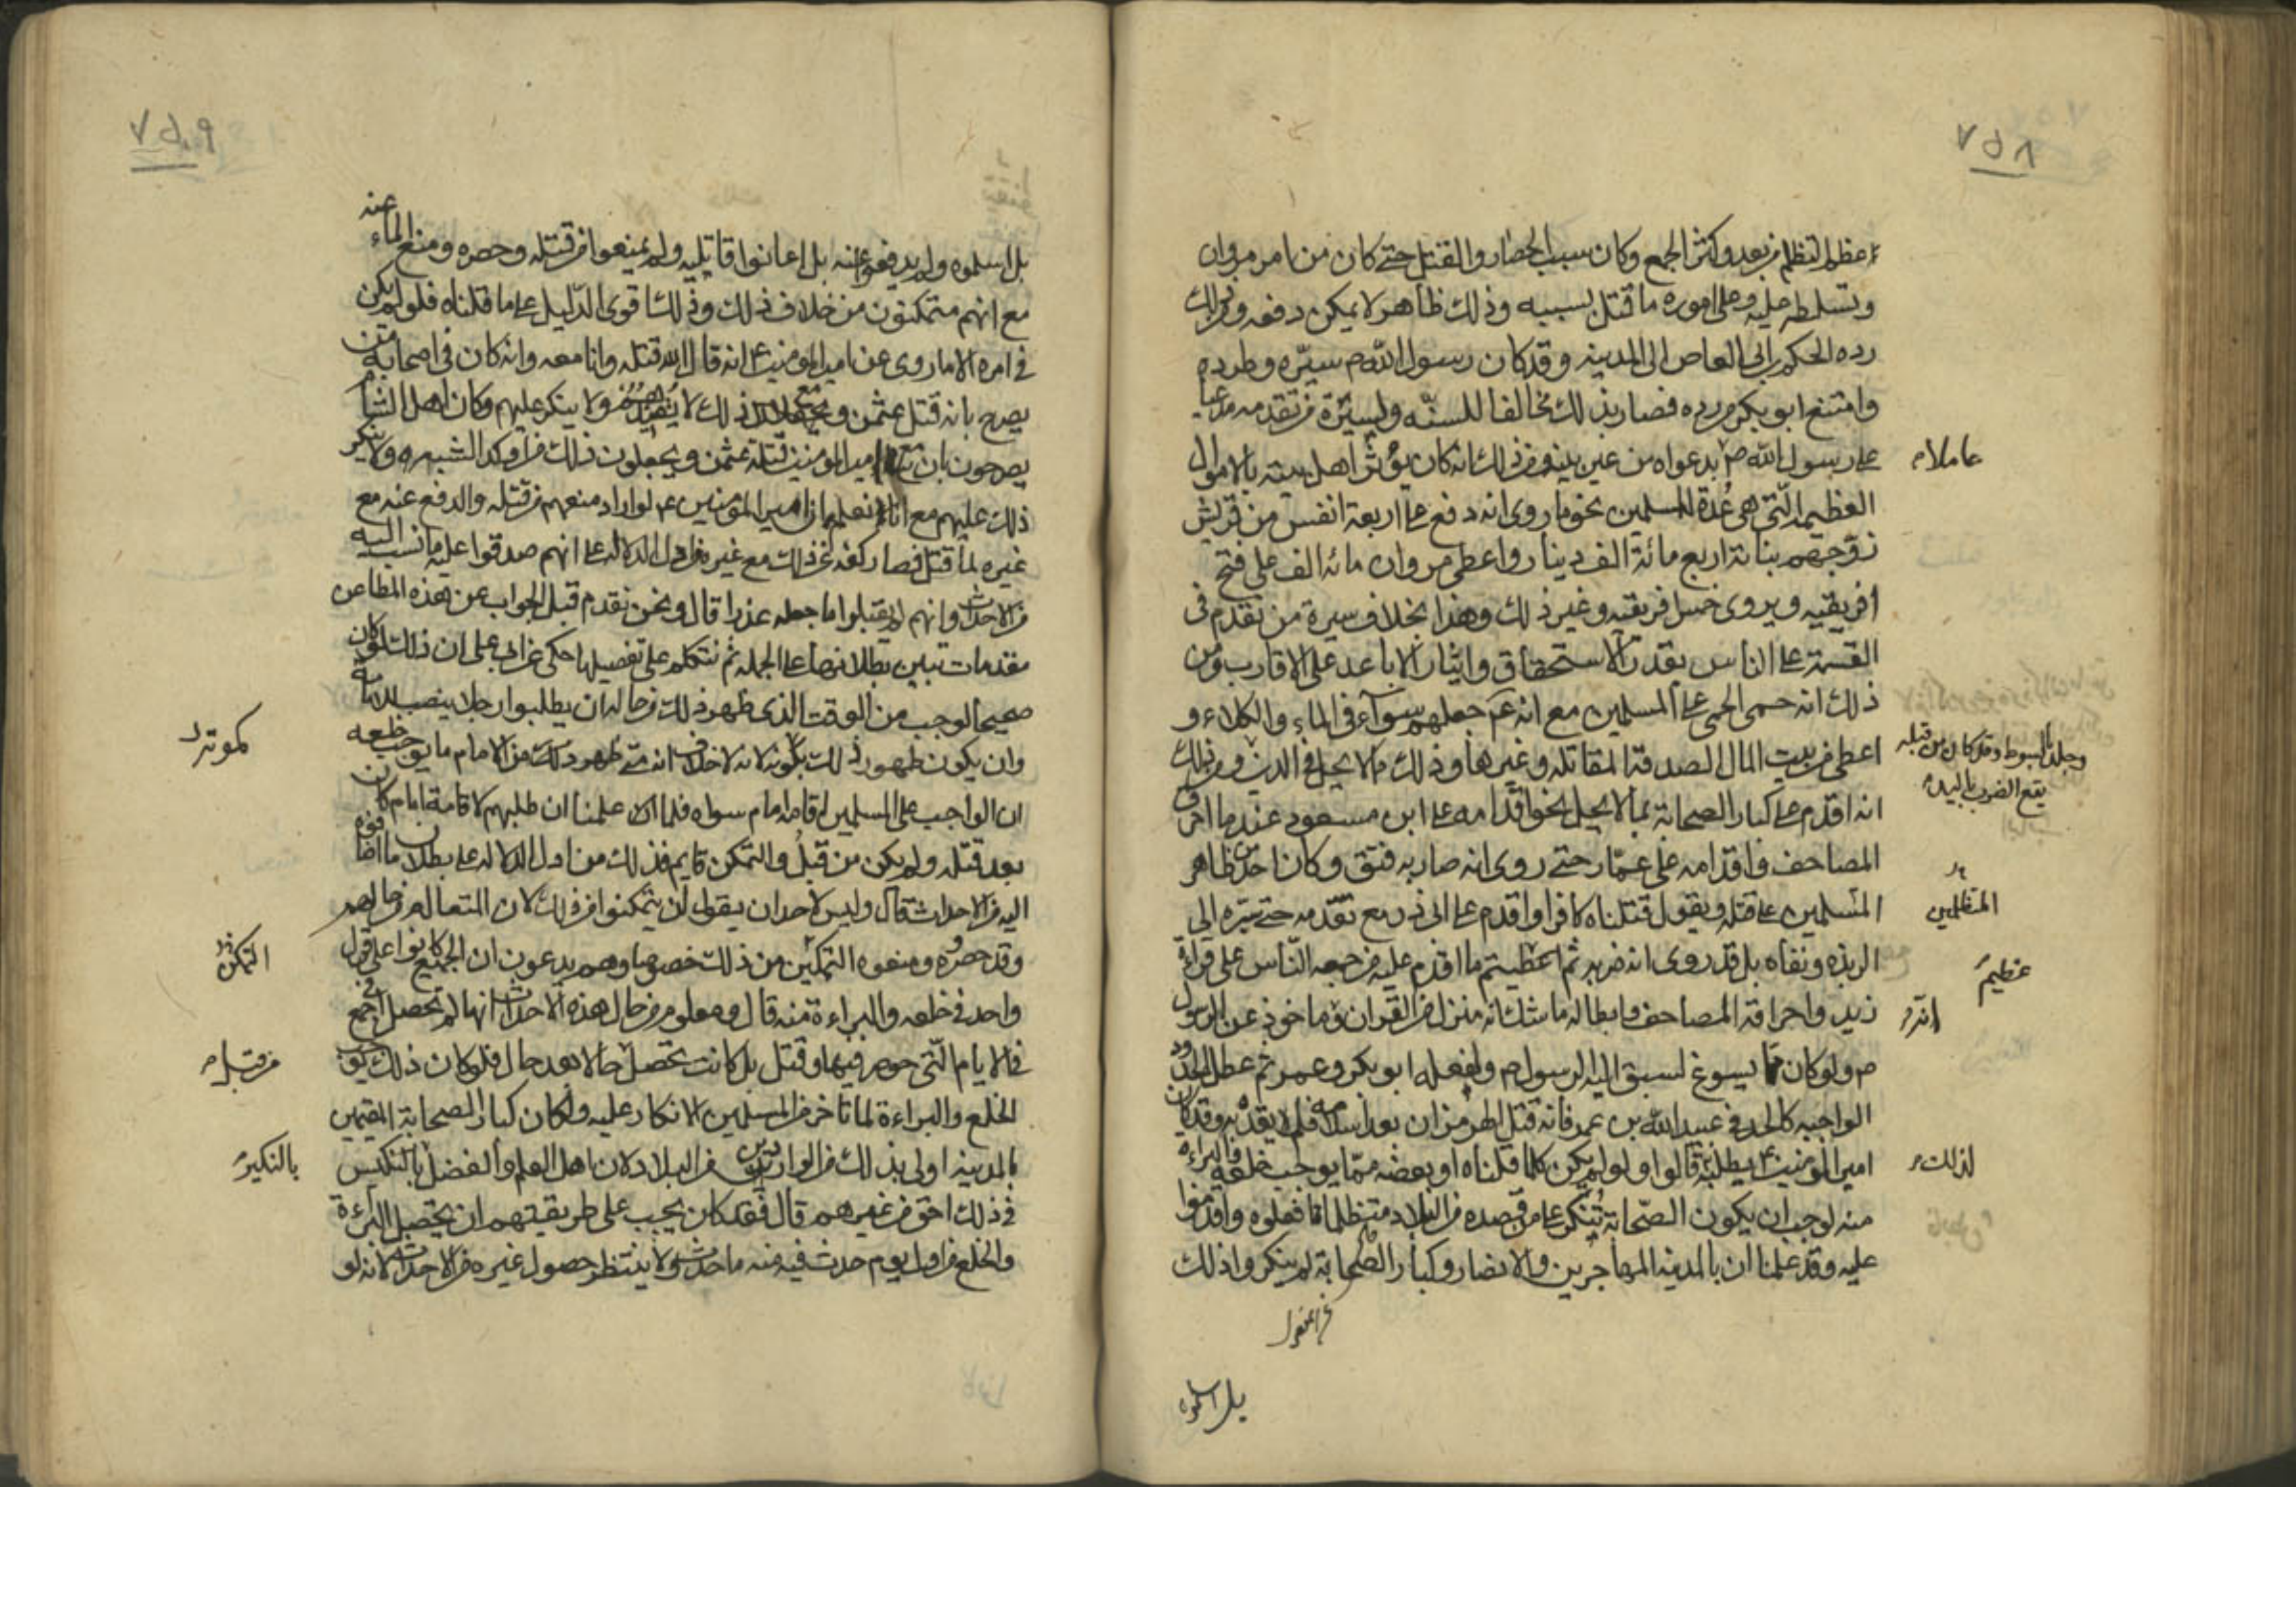 ٧٥٨
عظم التظلم من بعد وكثر الجمع وكان سبب الحصار والقتل حتى كان من امر مروان
وتسلطه عليه وعلى اموره ما قتل بسببه وذلك ظاهر لا يمكن دفعه ومن ذلك
رده الحكم بن ابى العاص الى المدينه وقد كان رسول الله ص سيّره وطرده
وامتنع ابو بكر من رده فصار بذلك مخالفا للسنّه ولسيرة من تقدمه مدعيا
على رسول الله ص بدعواه من غير بينه ومن ذلك انه كان يؤثر اهل بيته بالاموال
عاملا
العظيمه الّتى هى عُدة للمسلمين نحو ما روى انه دفع على اربعة انفس من قريش
زوّجهم بناته اربع مائة الف دينار واعطى مروان مائه الف على فتح
افريقيه ويروى خمس افريقيه وغير ذلك وهذا بخلاف سيرة من تقدم فى
القسمة على الناس بقدر الاستحقاق وايثار الاباعد على الاقارب ومن
ذلك انه حمى الحمى على المسلمين مع انه عم جعلهم سوآء فى الماء والكلاء و
اعطى من بيت المال الصدقة المقاتله وغيرها وذلك ممّا لا يحل فى الدين ومن ذلك
وجلد بالسوط وقد كان من قبله
يقع الضرب باليد
انه اقدم على كبار الصحابة بما لا يحل نحو اقدامه على ابن مسعود عند ما احرق
المصاحف واقدامه على عمّار حتى روى انه صار به فتق وكان احد من ظاهر
المتظلمين
المتسلمين على قتله ويقول قتلناه كافرا واقدم على ابى ذر مع تقدّمه حتى سيّره الى
الربذه ونفاه بل قد روى انه ضربه ثم عظيم ما اقدم عليه من جمعه النّاس على قراءة
عظيم
زيد واحراقه المصاحف وابطاله ما شك انه منزل من القران وماخوذ عن الرسول
انه
ص ولو كان مما يسوغ لسبق اليه الرسول ص ولفعله ابو بكر وعمر ثم عطل الحدود
الواجبه كالحد فى عبيد الله بن عمر فانه قتل الهرمزان بعد اسلامه فلم يقد به وقد كان
امير المومنين ع يطلبه قالوا ولو لم يكن كلما قلناه او بعضه ممّا يوجب خلعه والبراءة
لذلك
منه لوجب ان يكون الصّحابة تُنكر على من قصده من البلاد متظلما ما فعلوه واقدموا
عليه وقد علمنا ان بالمدينه المهاجرين والانصار وكبار الصّحابة لم ينكروا ذلك
بل اسلموه
٧٥٩
بل اسلموه ولم يدفعوا عنه بل اعانوا قاتليه ولم يمنعوا من قتله وحصره ومنع الماء عنه
مع انهم متمكنون من خلاف ذلك وذلك اقوى الدّليل على ما قلناه فلو لم يكن
فى امره الا ما روى عن امير المومنين ع انه قال الله قتله وانا معه وانه كان فى اصحابه من
يصرح بانه قتل عثمن ومع ذلك لا يُقيدهم ولا ينكر عليهم وكان اهل الشام
يصرحون بان مع امير المومنين قتلة عثمن ويجعلون ذلك من اوكد الشبهه ولا ينكر
ذلك عليهم مع انا نعلم ان امير المؤمنين ع لو اراد منعهم من قتله والدفع عنه مع
غيره لما قتل فصار كفه عن ذلك مع غيره من ادل الدلاله على انهم صدقوا عليه ما نسب اليه
من الاحداث وانهم لم يقبلوا ما جعله عذرا قال ونحن نقدم قبل الجواب عن هذه المطاعن
مقدمات تبين بطلانها على الجمله ثم نتكلم على تفصيلها حكى عن ابى على ان ذلك لو كان
صحيحا لوجب من الوقت الذى ظهر ذلك من حاله ان يطلبوا رجلا ينصب للامامة
وان يكون ظهور ذلك كموته لانه لا خلاف انه متى ظهر ذلك من الامام ما يوجب خلعه
كموته
ان الواجب على المسلمين اقامه امام سواه فلما علمنا ان طلبهم لاقامة امام كان
بعد قتله ولم يكن من قبل والتمكن قايم فذلك من ادل الدلاله على بطلان ما اضافوه
اليه من الاحداث قال وليس لاحد ان يقول لن يتمكنوا من ذلك لان المتعالم من حالهم
وقد حصروه ومنعوه التمكين من ذلك خصوصا وهم يدعون ان الجميع كانوا على قول
التمكن
واحد فى خلعه والبراءة منه قال ومعلوم من حال هذه الاحداث انها لم تحصل اجمع فى
الايام الّتى حوصر فيها وقتل بل كانت تحصل حالا بعد حال فلو كان ذلك يوجب
من قبل
الخلع والبراءة لما تاخر من المسلمين الانكار عليه ولكان كبار الصحابة المقيمين
بالمدينه اولى بذلك من الواردين من البلاد لان اهل العلم والفضل بالنكير
بالنكير
فى ذلك احق من غيرهم قال فقد كان يجب على طريقتهم ان يحصل البراءة
والخلع من اول يوم حدث فيه منه ما حدث ولا ينتظر حصول غيره من الاحداث لانه لو